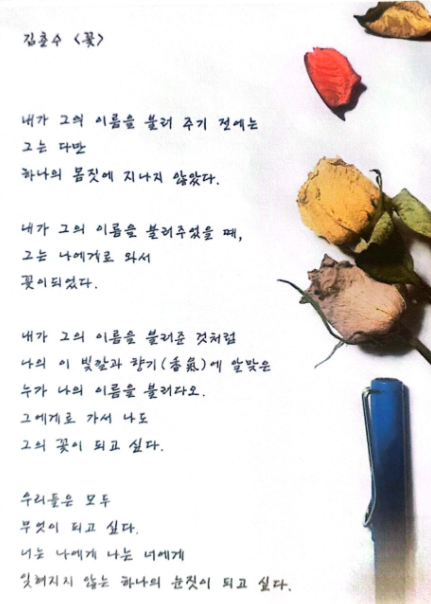 김춘수 <꽃>
내가 그의 이름을 불러 주기 전에는
그는 다만
하나의 몸짓에 지나지 않았다.
내가 그의 이름을 불러주었을 때,
그는 나에게로 와서
꽃이되었다.
내가 그의 이름을 불러준 것처럼
나의 이 빛깔과 향기(香氣)에 알맞은
누가 나의 이름을 불러다오.
그에게로 가서 나도
그의 꽃이 되고 싶다.
우리들은 모두
무엇이 되고 싶다.
너는 나에게 나는 너에게
잊혀지지 않는 하나의 눈짓이 되고 싶다.